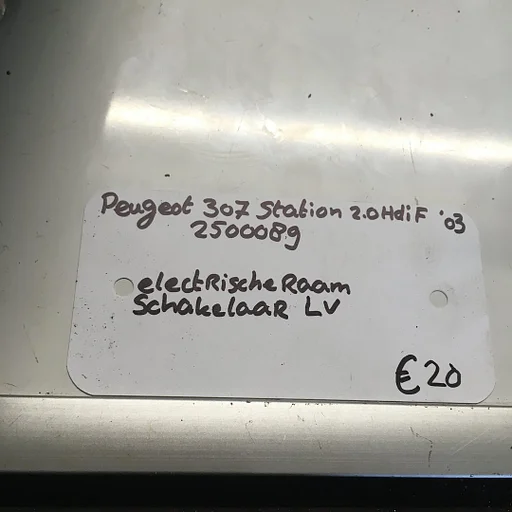 Peugeot 307 Station 2.0HdiF '03
2500089
electRische Raam
SchakelaaR LV
€20